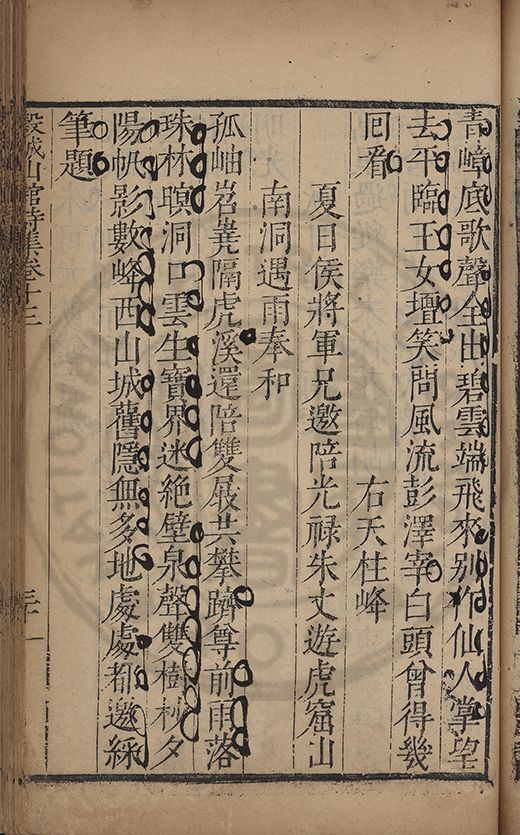 青嶂底歌聲全出碧雲端飛來別作仙人掌望
去平臨玉女壇笑問風流彭澤宰白頭曾得幾
回看　右天柱峰
夏日侯將軍兄邀陪光祿朱丈遊虎窟山
南洞遇雨奉和
孤岫岧嶤隔虎溪還陪雙屐共攀躋尊前雨落
珠林暝洞口雲生寶界迷絕壁泉聲雙樹杪夕
陽帆影數峰西山城舊隱無多地處處都邀綵
筆題
穀城山館詩集卷十三